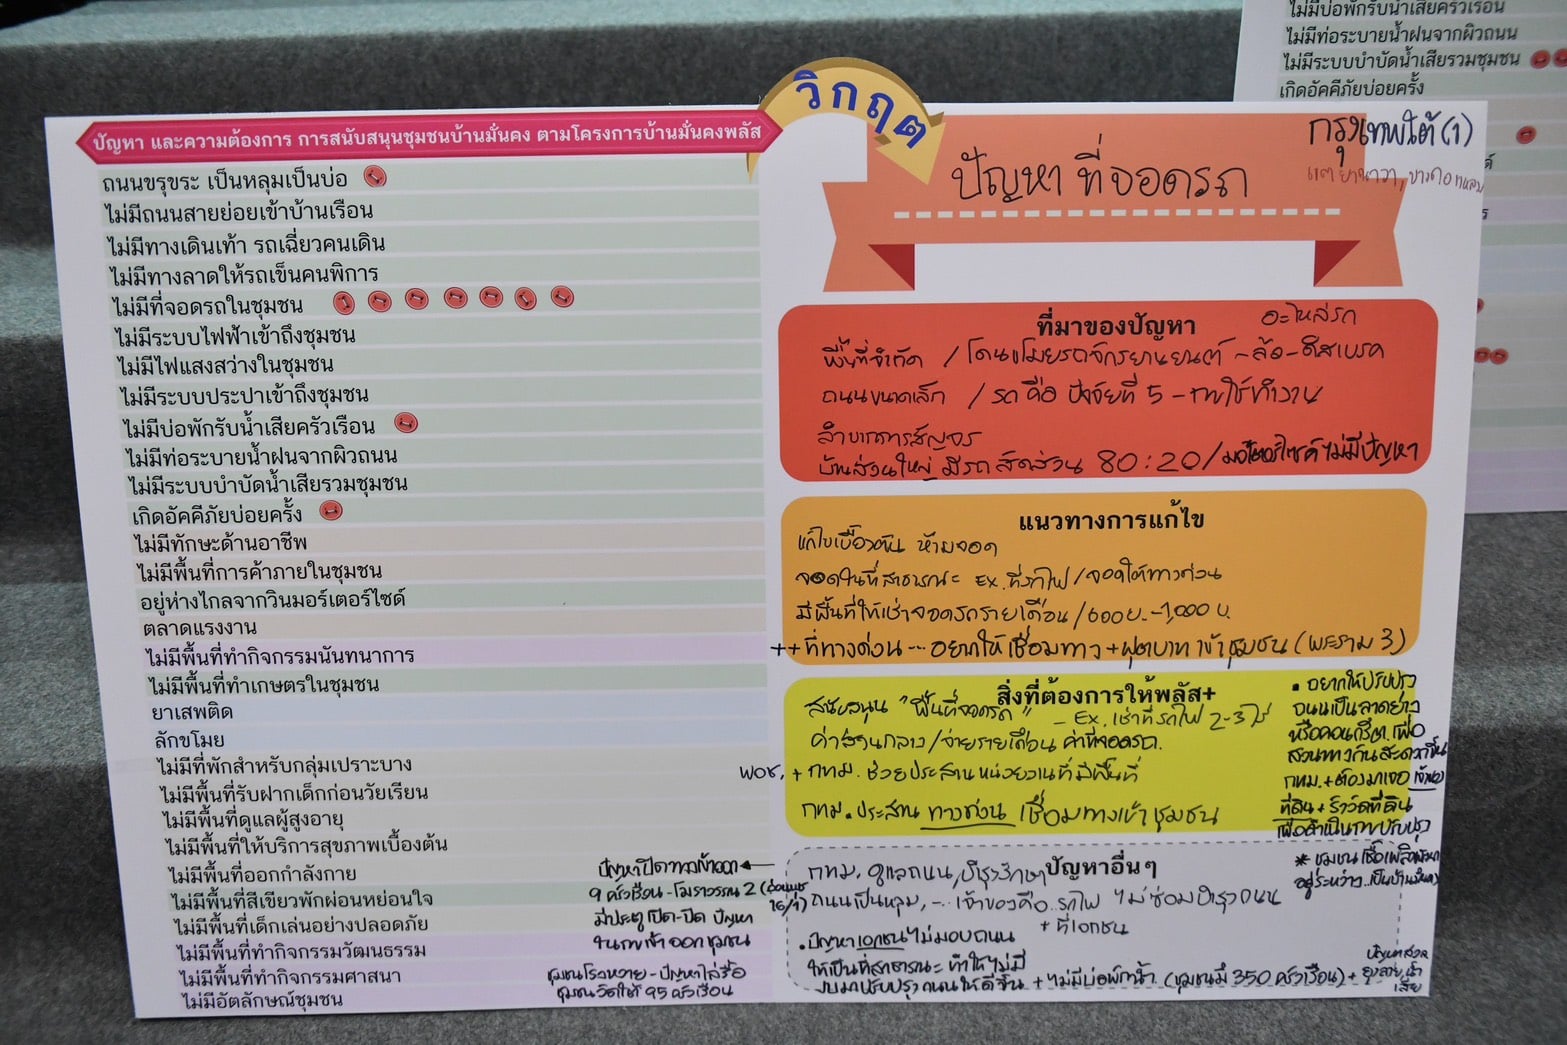 ปัญหา และความต้องการ การสนับสนุนชุมชนบ้านมั่นคง ตามโครงการบ้านมั่นคงพลัส
ถนนขรุขระ เป็นหลุมเป็นบ่อ
ไม่มีถนนสายย่อยเข้าบ้านเรือน
ไม่มีทางเดินเท้า รถเฉี่ยวคนเดิน
ไม่มีทางลาดให้รถเข็นคนพิการ
ไม่มีที่จอดรถในชุมชน
ไม่มีระบบไฟฟ้าเข้าถึงชุมชน
ไม่มีไฟแสงสว่างในชุมชน
ไม่มีระบบประปาเข้าถึงชุมชน
ไม่มีบ่อพักรับน้ำเสียครัวเรือน
ไม่มีท่อระบายน้ำฝนจากผิวถนน
ไม่มีระบบบำบัดน้ำเสียรวมชุมชน
เกิดอัคคีภัยบ่อยครั้ง
ไม่มีทักษะด้านอาชีพ
ไม่มีพื้นที่การค้าภายในชุมชน
อยู่ห่างไกลจากวินมอร์เตอร์ไซด์
ตลาดแรงงาน
ไม่มีพื้นที่ทำกิจกรรมนันทนาการ
ไม่มีพื้นที่ทำเกษตรในชุมชน
ยาเสพติด
ลักขโมย
ไม่มีที่พักสำหรับกลุ่มเปราะบาง
ไม่มีพื้นที่รับฝากเด็กก่อนวัยเรียน
ไม่มีพื้นที่ดูแลผู้สูงอายุ
ไม่มีพื้นที่ให้บริการสุขภาพเบื้องต้น
ไม่มีพื้นที่ออกกำลังกาย
ไม่มีพื้นที่สีเขียวพักผ่อนหย่อนใจ
ไม่มีพื้นที่เด็กเล่นอย่างปลอดภัย
ไม่มีพื้นที่ทำกิจกรรมวัฒนธรรม
ไม่มีพื้นที่ทำกิจกรรมศาสนา
ไม่มีอัตลักษณ์ชุมชน
ปัญหาปิดทางเข้าออก
9 ครัวเรือน - โมราวรรณ 2 (อ่อนนุช 16/1)
มีประตูเปิด-ปิด ปัญหา
ในการเข้าออกชุมชน
ชุมชนโรงหวาย - ปัญหาไล่รื้อ
ชุมชนวัดใต้ 95 ครัวเรือน
วิกฤต
ปัญหา ที่จอดรถ
กรุงเทพใต้ (1)
ยานาวา, บางคอแหลม
ที่มาของปัญหา
อะไหล่รถ
พื้นที่จำกัด / โดนขโมยรถจักรยานยนต์ - ล้อ - ดิสเบรค
ถนนขนาดเล็ก / รถ คือ ปัจจัยที่ 5 - การใช้ทำงาน
ลำบากการสัญจร
บ้านส่วนใหญ่ มีรถ สัดส่วน 80:20 / มอเตอร์ไซค์ ไม่มีปัญหา
แนวทางการแก้ไข
แก้ไขเบื้องต้น ห้ามจอด
จอดในที่สาธารณะ EX. ที่รถไฟ / จอดใต้ทางด่วน
มีพื้นที่ให้เช่าจอดรถรายเดือน / 600 บ. - 1,000 บ.
++ ที่ทางด่วน -- อยากให้เชื่อมทาง + ฟุตบาทเข้าชุมชน (พระราม 3)
สิ่งที่ต้องการให้พลัส+
สนับสนุน "พื้นที่จอดรถ" - EX. เช่าที่รถไฟ 2-3 ไร่
ค่าส่วนกลาง / จ่ายรายเดือน ค่าที่จอดรถ.
พอช. + กทม. ช่วยประสานหน่วยงานที่มีพื้นที่
กทม. ประสาน ทางด่วน เชื่อมทางเข้าชุมชน
• อยากให้ปรับปรุง
ถนนเป็นลาดยาง
หรือคอนกรีต เพื่อ
สวนทางกันสะดวกขึ้น
กทม. + ต้องมาเจอ เจ้าของ
ที่ดิน + รังวัดที่ดิน
เพื่อดำเนินการปรับปรุง
ปัญหาอื่นๆ
กทม. ดูแลถนน, บำรุงรักษา
ถนนเป็นหลุม, - เจ้าของคือ รถไฟ ไม่ซ่อมบำรุงถนน
+ ที่เอกชน
• ปัญหาเอกชนไม่มอบถนน
ให้เป็นที่สาธารณะ ทำให้ไม่มี
งบมาปรับปรุงถนนให้ดีขึ้น + ไม่มีบ่อพักน้ำ (ชุมชนมี 350 ครัวเรือน) +
* ชุมชนเชื้อเพลิงพัฒนา
อยู่ระหว่าง..เป็นบ้านมั่นคง
น้ำ
เสีย
ไม่มีบ่อพักรับน้ำเสียครัวเรือน
ไม่มีท่อระบายน้ำฝนจากผิวถนน
ไม่มีระบบบำบัดน้ำเสียรวมชุมชน
เกิดอัคคีภัยบ่อยครั้ง